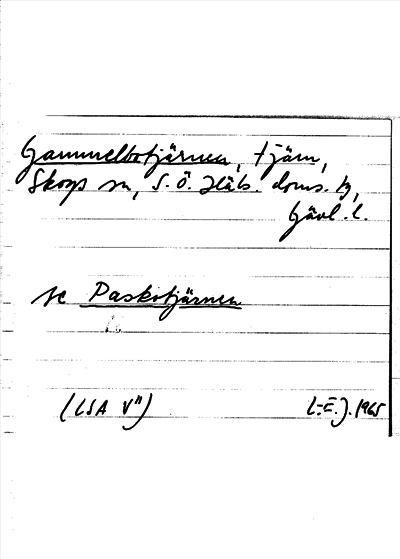 Gammelbotjärnen, tjärn,
Skogs sn, S. Ö. Häls. doms. tg,
Gävl. l.
se Paskotjärnen
(LSA V")
L-E. J. 1965